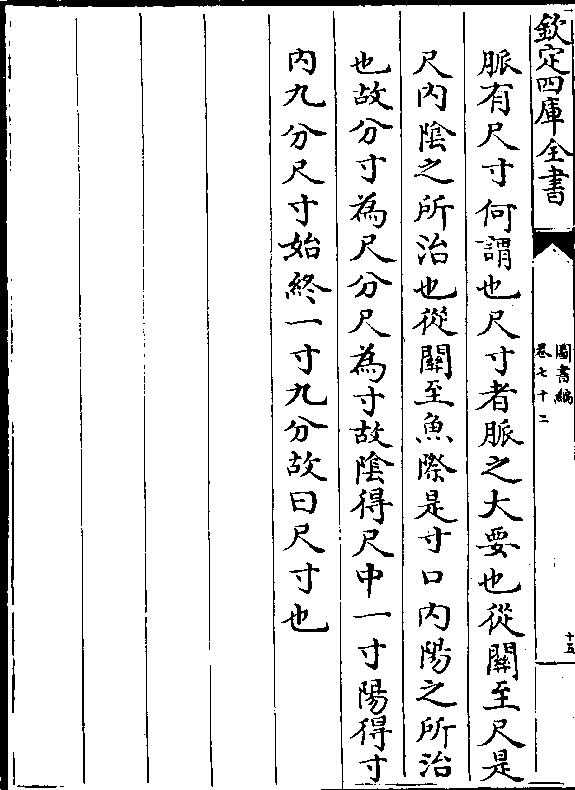 欽定四庫全書
圖書編
卷七十二
十五
脈有尺寸何謂也尺寸者脈之大要也從關至尺是
尺内陰之所治也從關至魚際是寸口内陽之所治
也故分寸為尺分尺為寸故陰得尺中一寸陽得寸
内九分尺寸始終一寸九分故曰尺寸也